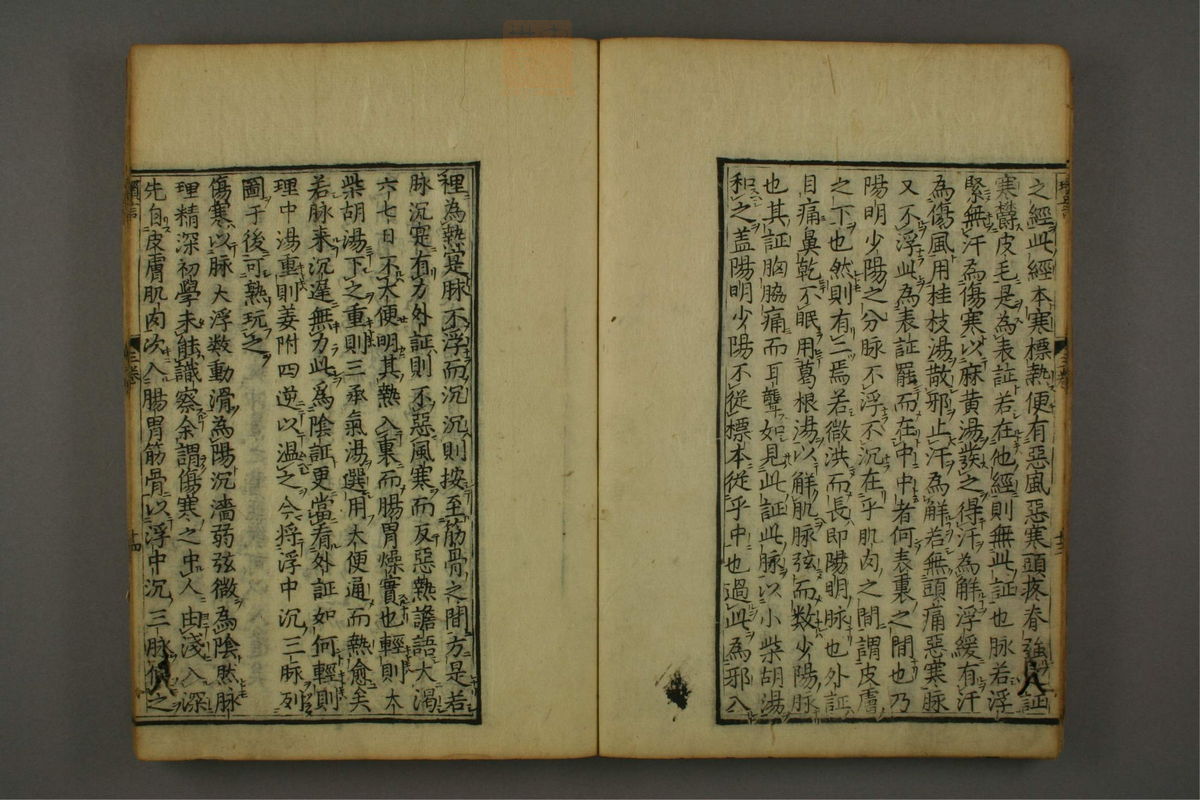 之經此經本寒標熱便有惡風惡寒頭疼脊強証
寒欝皮毛是為表証若在他經則無此証也脉若浮
緊無汗為傷寒以麻黄湯發之得汗為解浮緩有汗
為傷風用桂枝湯散邪止汗為解若無頭痛惡寒脉
又不浮此為表証罷而在中中者何表裏之間也乃
陽明少陽之分脉不浮不沉在乎肌肉之間謂皮膚
之下也然則有二焉若微洪而長即陽明脉也外証
目痛鼻乾不眠用葛根湯以解肌脉弦而数少陽脉
也其証胸脇痛而耳聾如見此証此脉以小柴胡湯
和之盖陽明少陽不従標本従乎中也過此為邪入
裡為熱實脉不浮而沉沉則按至筋骨之間方是若
脉沉寔有力外証則不惡風寒而反惡熱譫語大渴
六七日不大便明其熱入裏而腸胃燥實也輕則大
柴胡湯下之重則三承氣湯選用大便通而熱愈矣
若脉来沉遲無力此為陰証更當看外証如何輕則
理中湯重則姜附四逆以温之今将浮中沉三脉列
圖于後可熟玩之
傷寒以脉大浮数動滑為陽沉濇弱弦微為陰然脉
理精深初學未能識察余謂傷寒之中人由淺入深
先自皮膚肌肉次入腸胃筋骨以浮中沉三脉候之